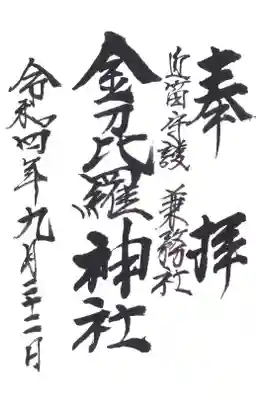 奉拝
守護 兼務社
金刀比羅神社
令和四年九月二十二日